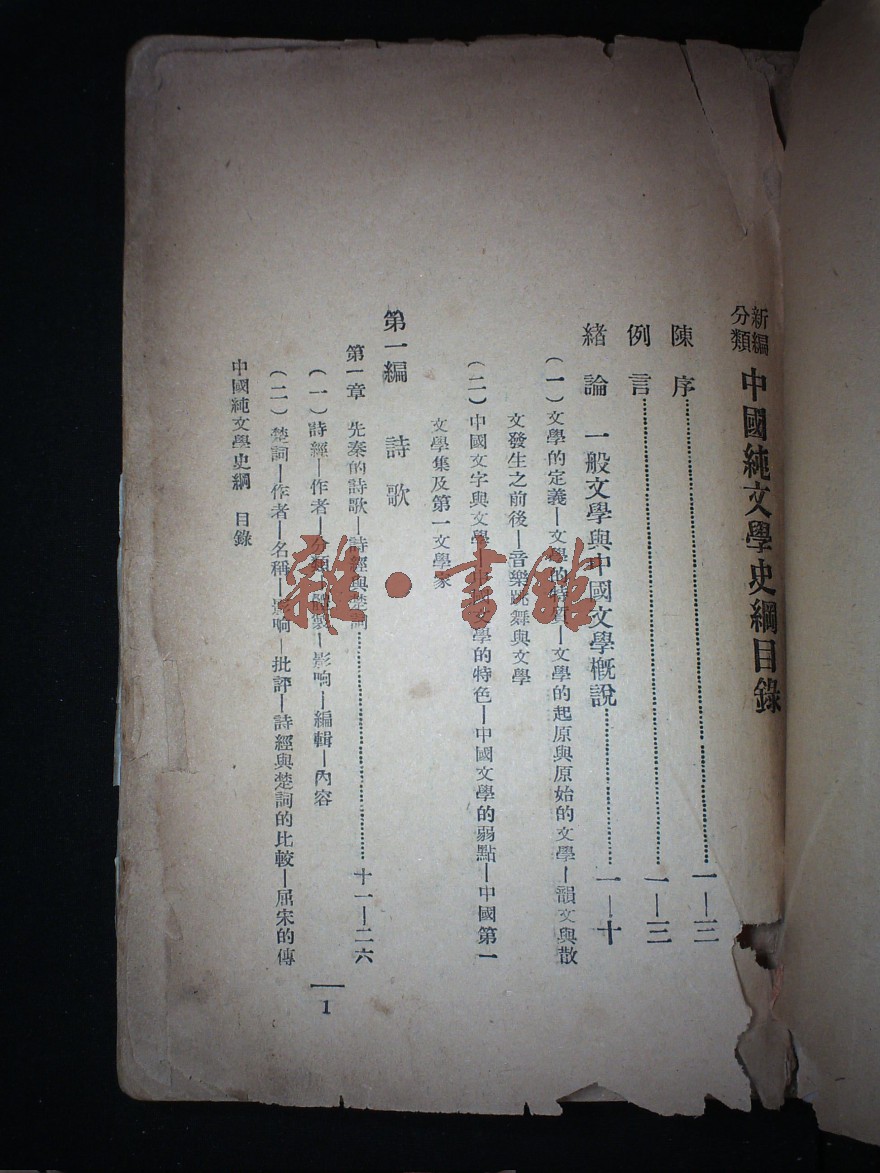 新編分類 中國純文學史綱目錄
陳序……一—三
例言……一—三
緒論 一般文學與中國文學概說……一—十
(一)文學的定義—文學的特質—文學的起原與原始的文學—韻文與散
文發生之前後—音樂跳舞與文學
(二)中國文字與文學—中國文學的特色—中國文學的弱點—中國第一
文學集及第一文學家
第一編 詩歌
第一章 先秦的詩歌—詩經與楚詞……十一—二六
(一)詩經—作者—分類—體製—影响—編輯—內容
(二)楚詞—作者—名稱—影响—批評—詩經與楚詞的比較—屈宋的傳
中國純文學史綱 目錄
1
雜·書館